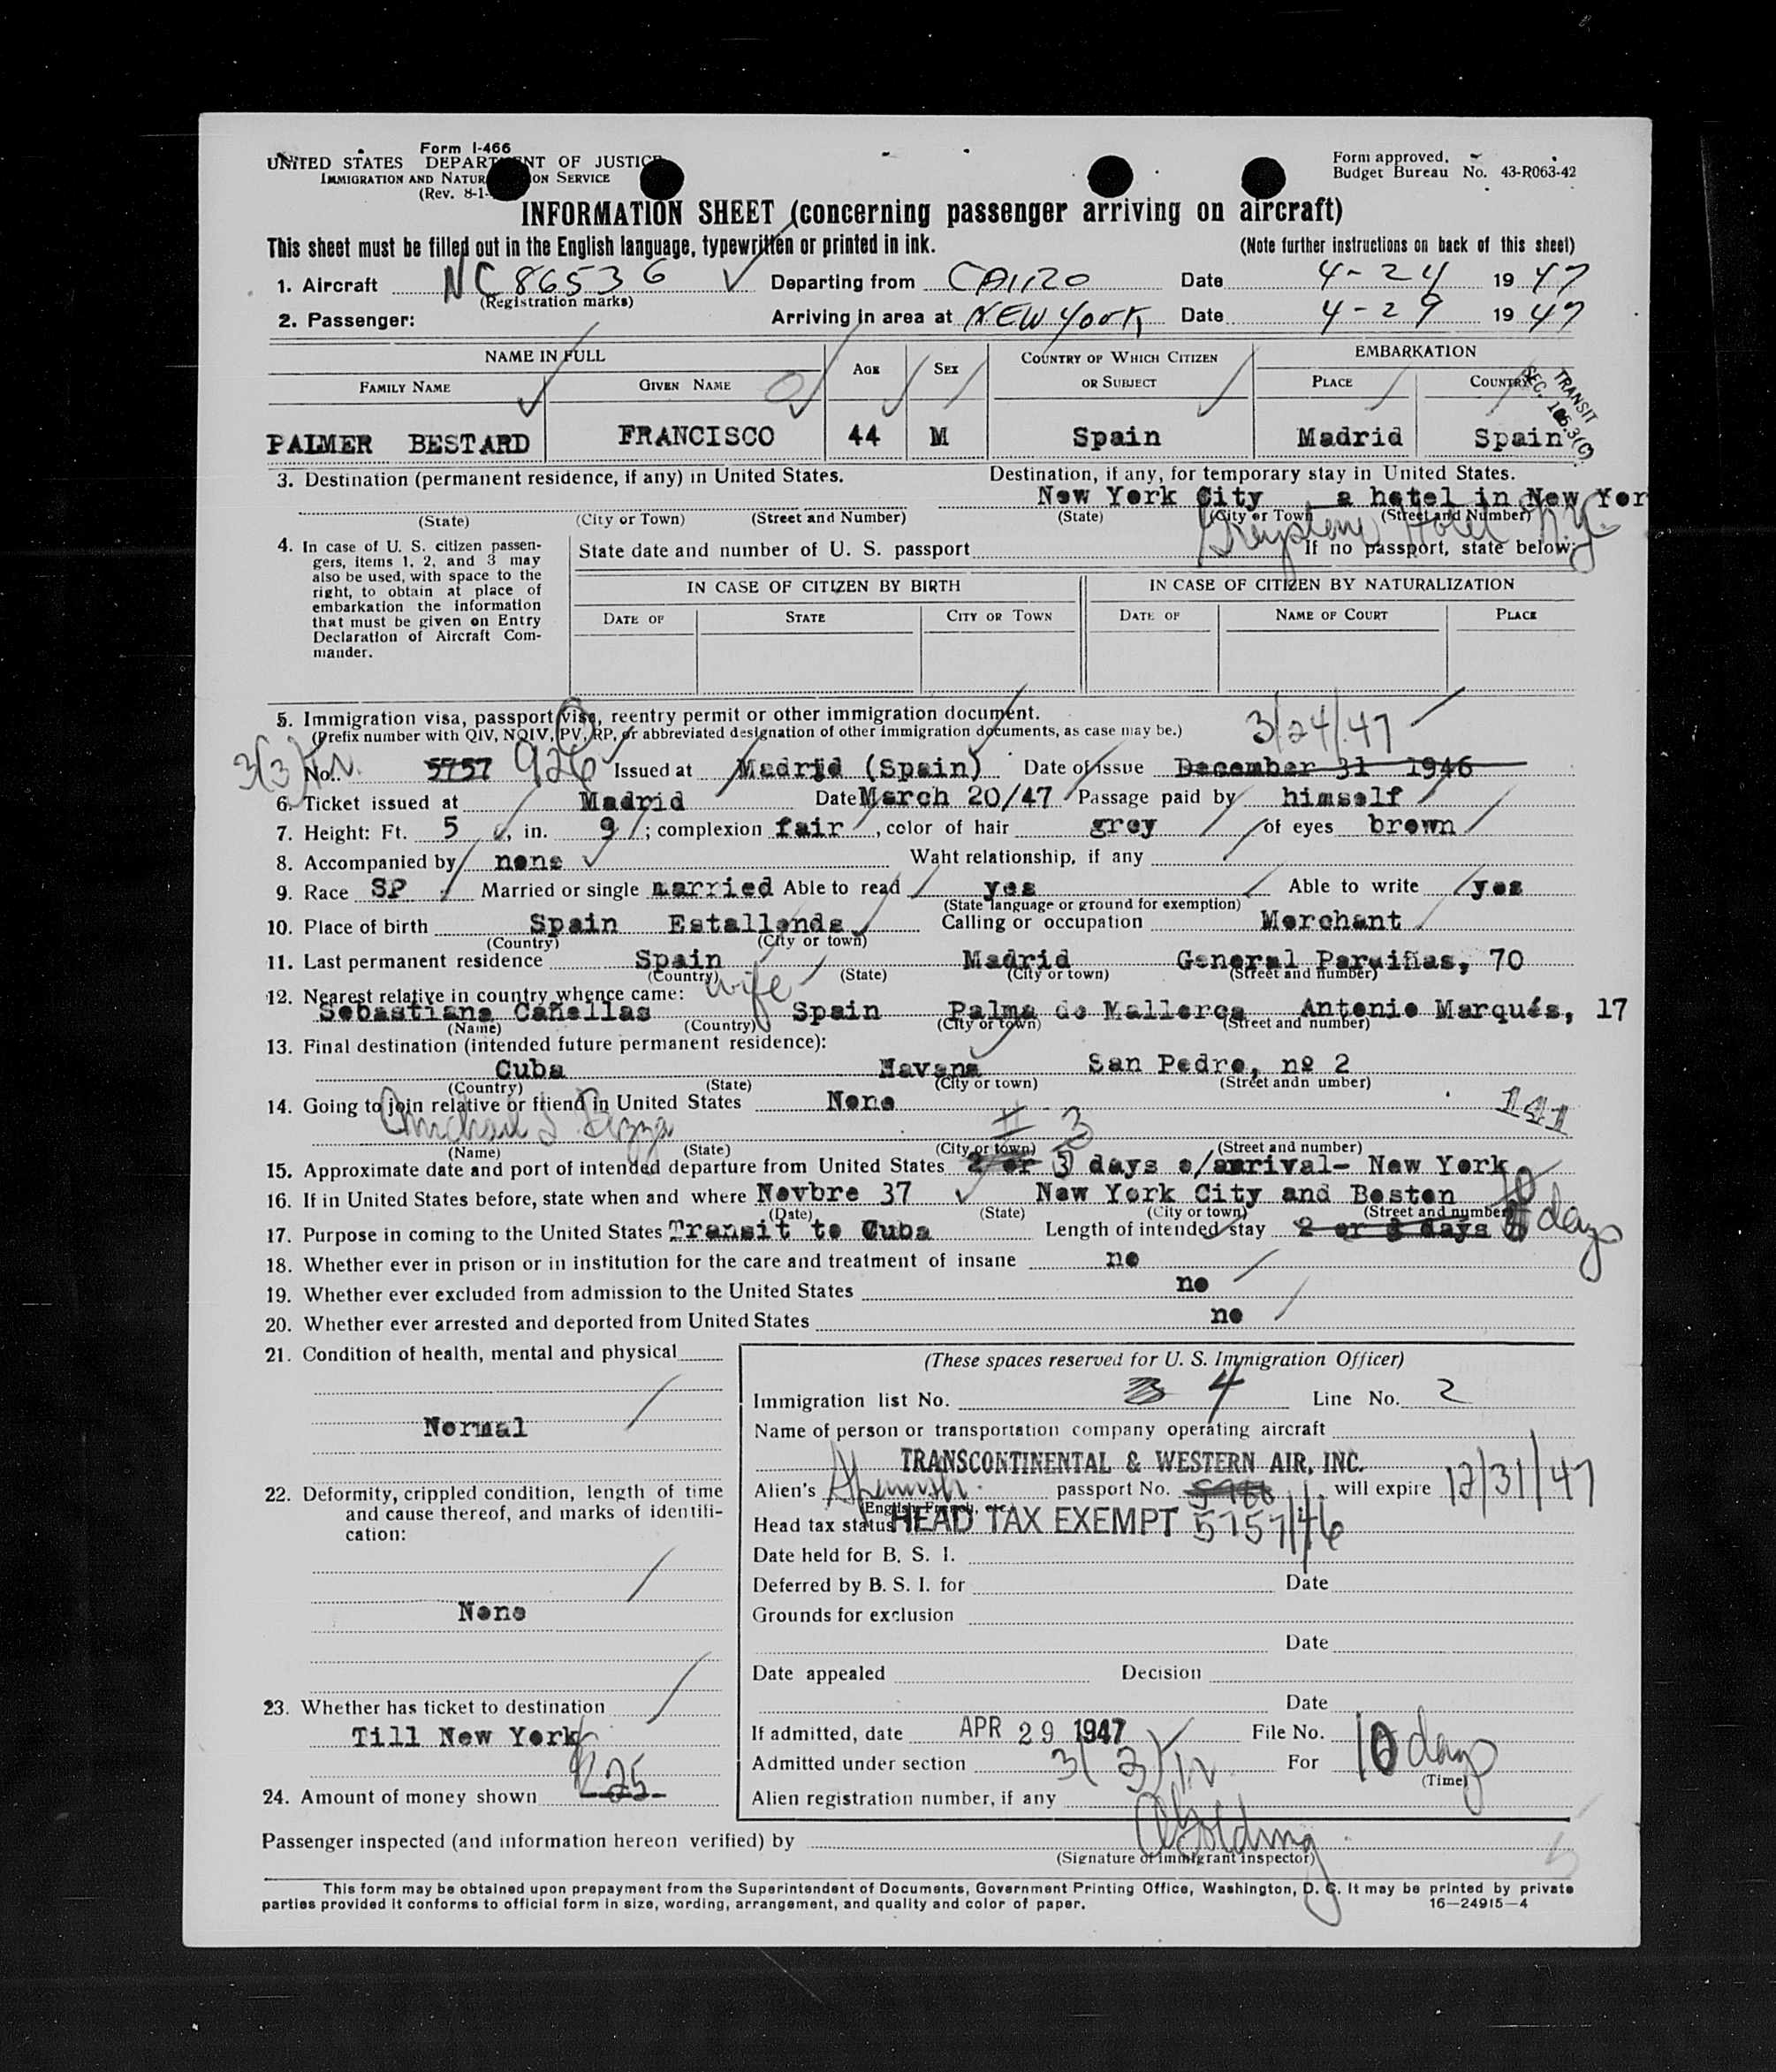 Form I-466
UNITED STATES DEPARTMENT OF JUSTICE
IMMIGRATION AND NATURALIZATION SERVICE
(Rev. 8-1-
Form approved.
Budget Bureau No. 43-R063-42
INFORMATION SHEET (concerning passenger arriving on aircraft)
This sheet must be filled out in the English language, typewritten or printed in ink. (Note further instructions on back of this sheet)
1. Aircraft NC 86536 Departing from CAIRO Date 4-24 19 47
(Registration marks)
2. Passenger: Arriving in area at NEW YORK Date 4-29 19 47
NAME IN FULL AGE SEX COUNTRY OF WHICH CITIZEN OR SUBJECT EMBARKATION
FAMILY NAME GIVEN NAME PLACE COUNTRY
TRANSIT
SEC.
PALMER BESTARD FRANCISCO 44 M Spain Madrid Spain
3. Destination (permanent residence, if any) in United States. Destination, if any, for temporary stay in United States.
New York City a hotel in New Yor
(State) (City or Town) (Street and Number) (State) (City or Town (Street and Number)
Hotel N.Y.
4. In case of U. S. citizen passen-
gers, items 1, 2, and 3 may
also be used, with space to the
right, to obtain at place of
embarkation the information
that must be given on Entry
Declaration of Aircraft Com-
mander.
State date and number of U. S. passport If no passport, state below:
IN CASE OF CITIZEN BY BIRTH IN CASE OF CITIZEN BY NATURALIZATION
DATE OF STATE CITY OR TOWN DATE OF NAME OF COURT PLACE
5. Immigration visa, passport visa, reentry permit or other immigration document.
(Prefix number with QIV, NQIV, PV, RP, or abbreviated designation of other immigration documents, as case may be.) 3/24/47
No. 5757 926 Issued at Madrid (Spain) Date of issue December 31 1946
6. Ticket issued at Madrid Date March 20/47 Passage paid by himself
7. Height: Ft. 5, in. 9; complexion fair, color of hair grey of eyes brown
8. Accompanied by none Waht relationship, if any
9. Race SP Married or single married Able to read yes Able to write yes
(State language or ground for exemption)
10. Place of birth Spain Estallends Calling or occupation Merchant
(Country) (City or town)
11. Last permanent residence Spain Madrid General Parviñas, 70
(Country) (State) (City or town) (Street and number)
12. Nearest relative in country whence came: wife
Sebastiana Cañellas Spain Palma de Mallorca Antonio Marqués, 17
(Name) (Country) (City or town) (Street and number)
13. Final destination (intended future permanent residence):
Cuba Havana San Pedro, nº 2
(Country) (State) (City or town) (Street andn umber)
14. Going to join relative or friend in United States None 141
(Name) (State) (City or town) (Street and number)
15. Approximate date and port of intended departure from United States 2 or 3 days o/amrival- New York
16. If in United States before, state when and where Novbre 37 New York City and Boston
(Date) (State) (City or town) (Street and number)
17. Purpose in coming to the United States Transit to Cuba Length of intended stay 2 or 3 days 10 days
18. Whether ever in prison or in institution for the care and treatment of insane no
19. Whether ever excluded from admission to the United States no
20. Whether ever arrested and deported from United States no
21. Condition of health, mental and physical
Normal
22. Deformity, crippled condition, length of time
and cause thereof, and marks of identifi-
cation:
None
23. Whether has ticket to destination
Till New York
24. Amount of money shown 25
(These spaces reserved for U. S. Immigration Officer)
Immigration list No. 3 4 Line No. 2
Name of person or transportation company operating aircraft
TRANSCONTINENTAL & WESTERN AIR, INC.
Alien's Spanish passport No. will expire 12/31/47
(English, French, etc.)
Head tax status HEAD TAX EXEMPT 5757/46
Date held for B. S. I.
Deferred by B. S. I. for Date
Grounds for exclusion
Date
Date appealed Decision
Date
If admitted, date APR 29 1947 File No.
Admitted under section 3(3) For 10 days
(Time)
Alien registration number, if any
Passenger inspected (and information hereon verified) by
(Signature of immigrant inspector)
This form may be obtained upon prepayment from the Superintendent of Documents, Government Printing Office, Washington, D. C. It may be printed by private
parties provided it conforms to official form in size, wording, arrangement, and quality and color of paper. 16—24915-4